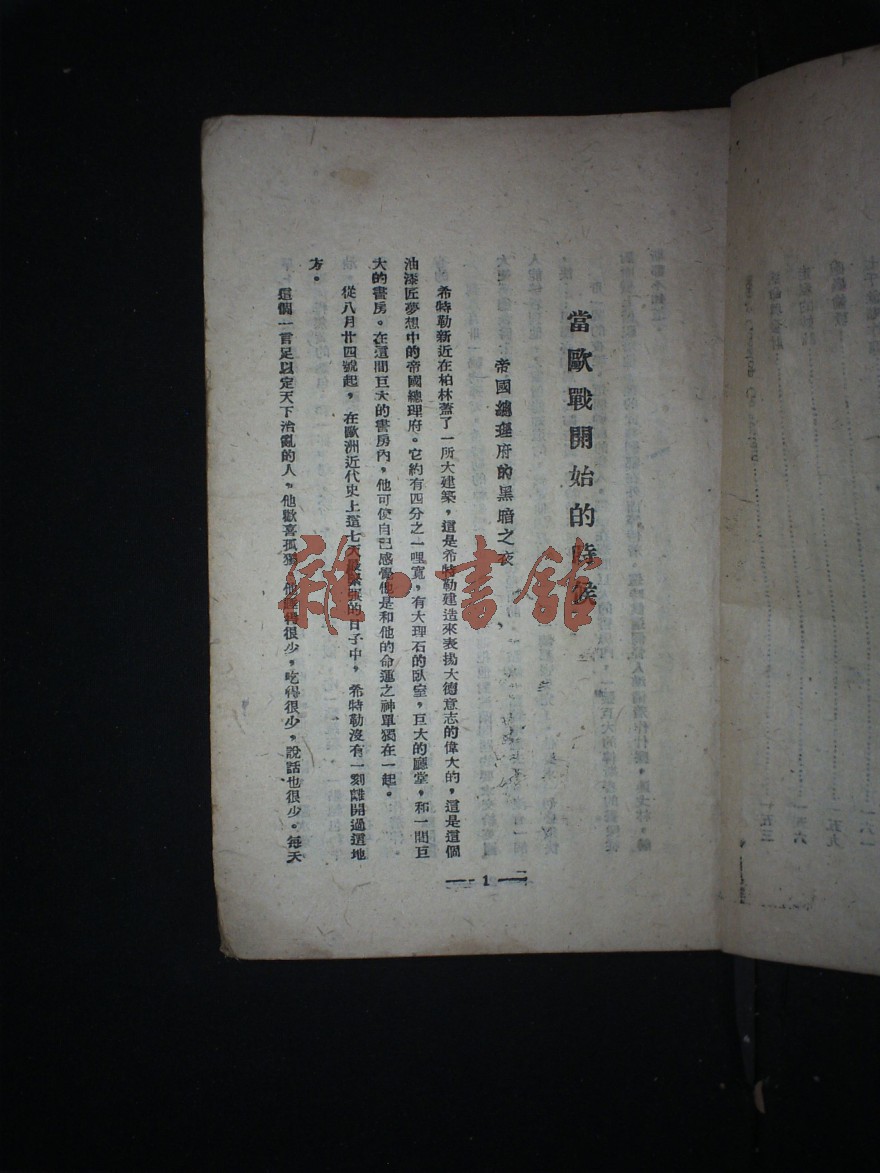 當歐戰開始的時候
帝國總理府的黑暗之夜
希特勒新近在柏林蓋了一所大建築，這是希特勒建造來表揚大德意志的偉大的，這是這個
油漆匠夢想中的帝國總理府。它約有四分之一哩寬，有大理石的臥室，巨大的廳堂，和一間巨
大的書房。在這間巨大的書房內，他可使自己感覺他是和他的命運之神單獨在一起。
從八月廿四號起，在歐洲近代史上這七天最緊張的日子中，希特勒沒有一刻離開過這地
方。
這個一言足以定天下治亂的人，他歡喜孤獨，他睡得很少，吃得很少，說話也很少。每天
1
一六一
一五九
一五六
一五三
雜·書館